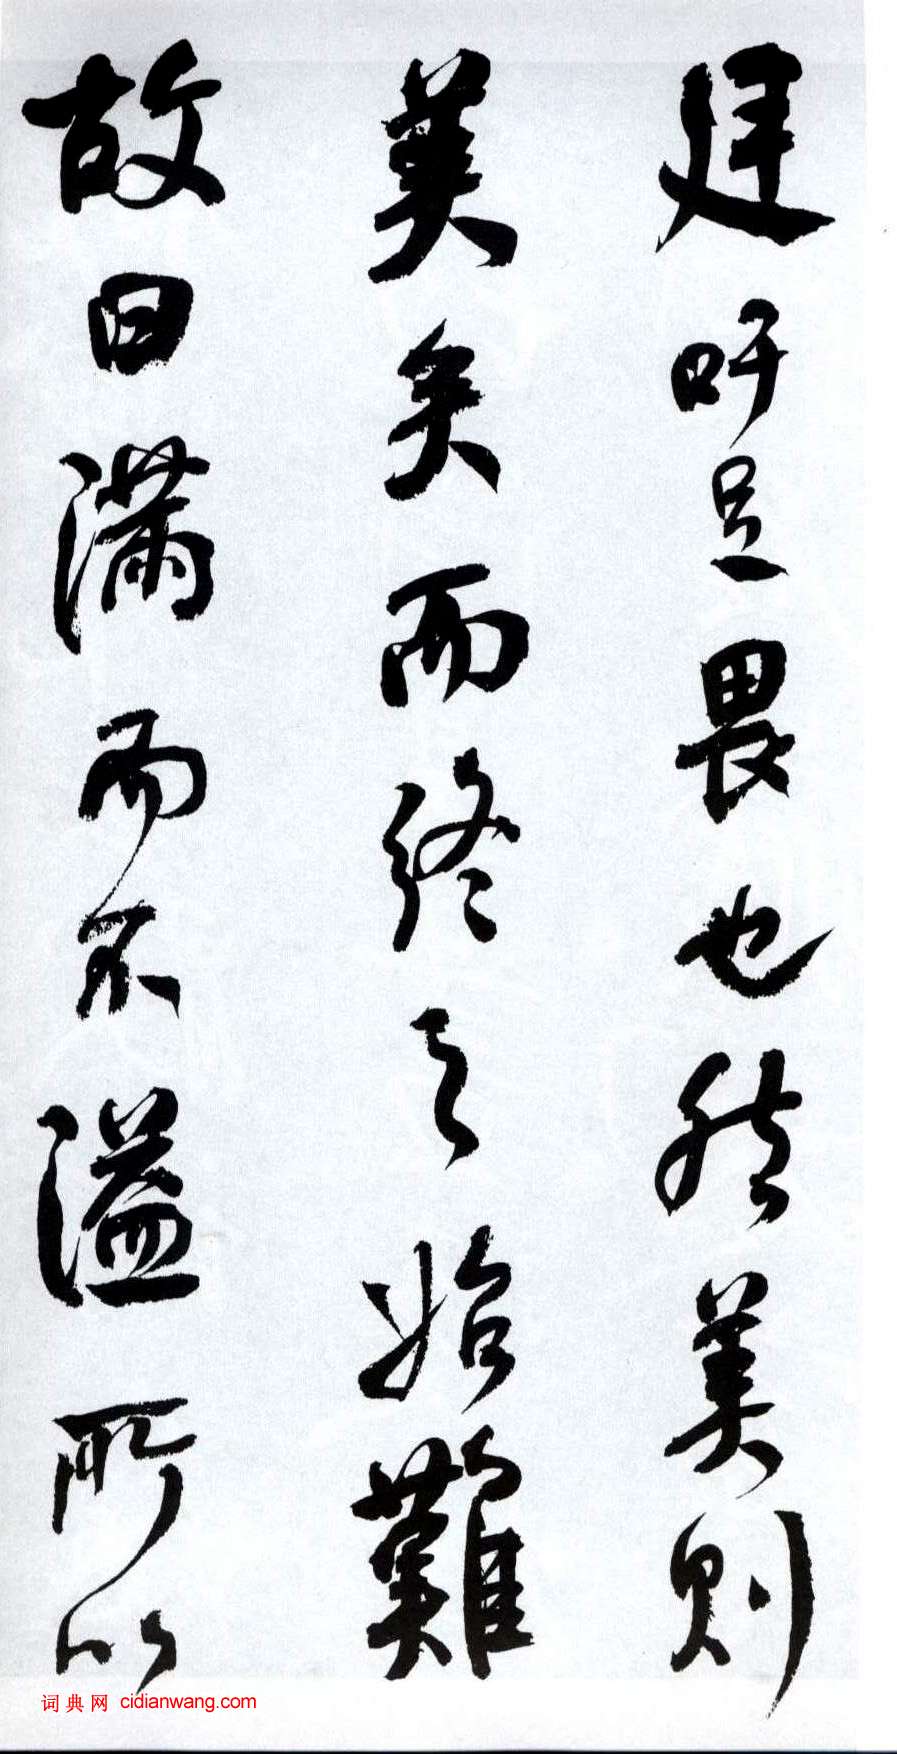 廷吁足畏也然美則
美矣而終之始難
故曰滿而不溢所以
词典网 cidianwang.com